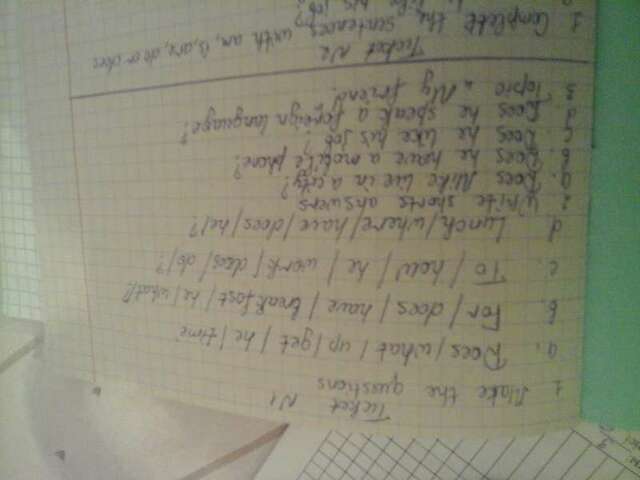 Ticket N1
1 Make the questions
a. Does/what/up/get/he/time
b. For/does/have/breakfast/he/what??
c. To/how/he/work/does/do/?
d Lunch/where/have/does/he/?
2 Write shorts answers
a. Does Mike live in a city?
b. Does he have a mobile phone?
c Does he like his job
d Does he speak a foreign language?
3 Topic "My friend
Ticket N2
1 Complete the sentences with am, is, are, do or does
like his job